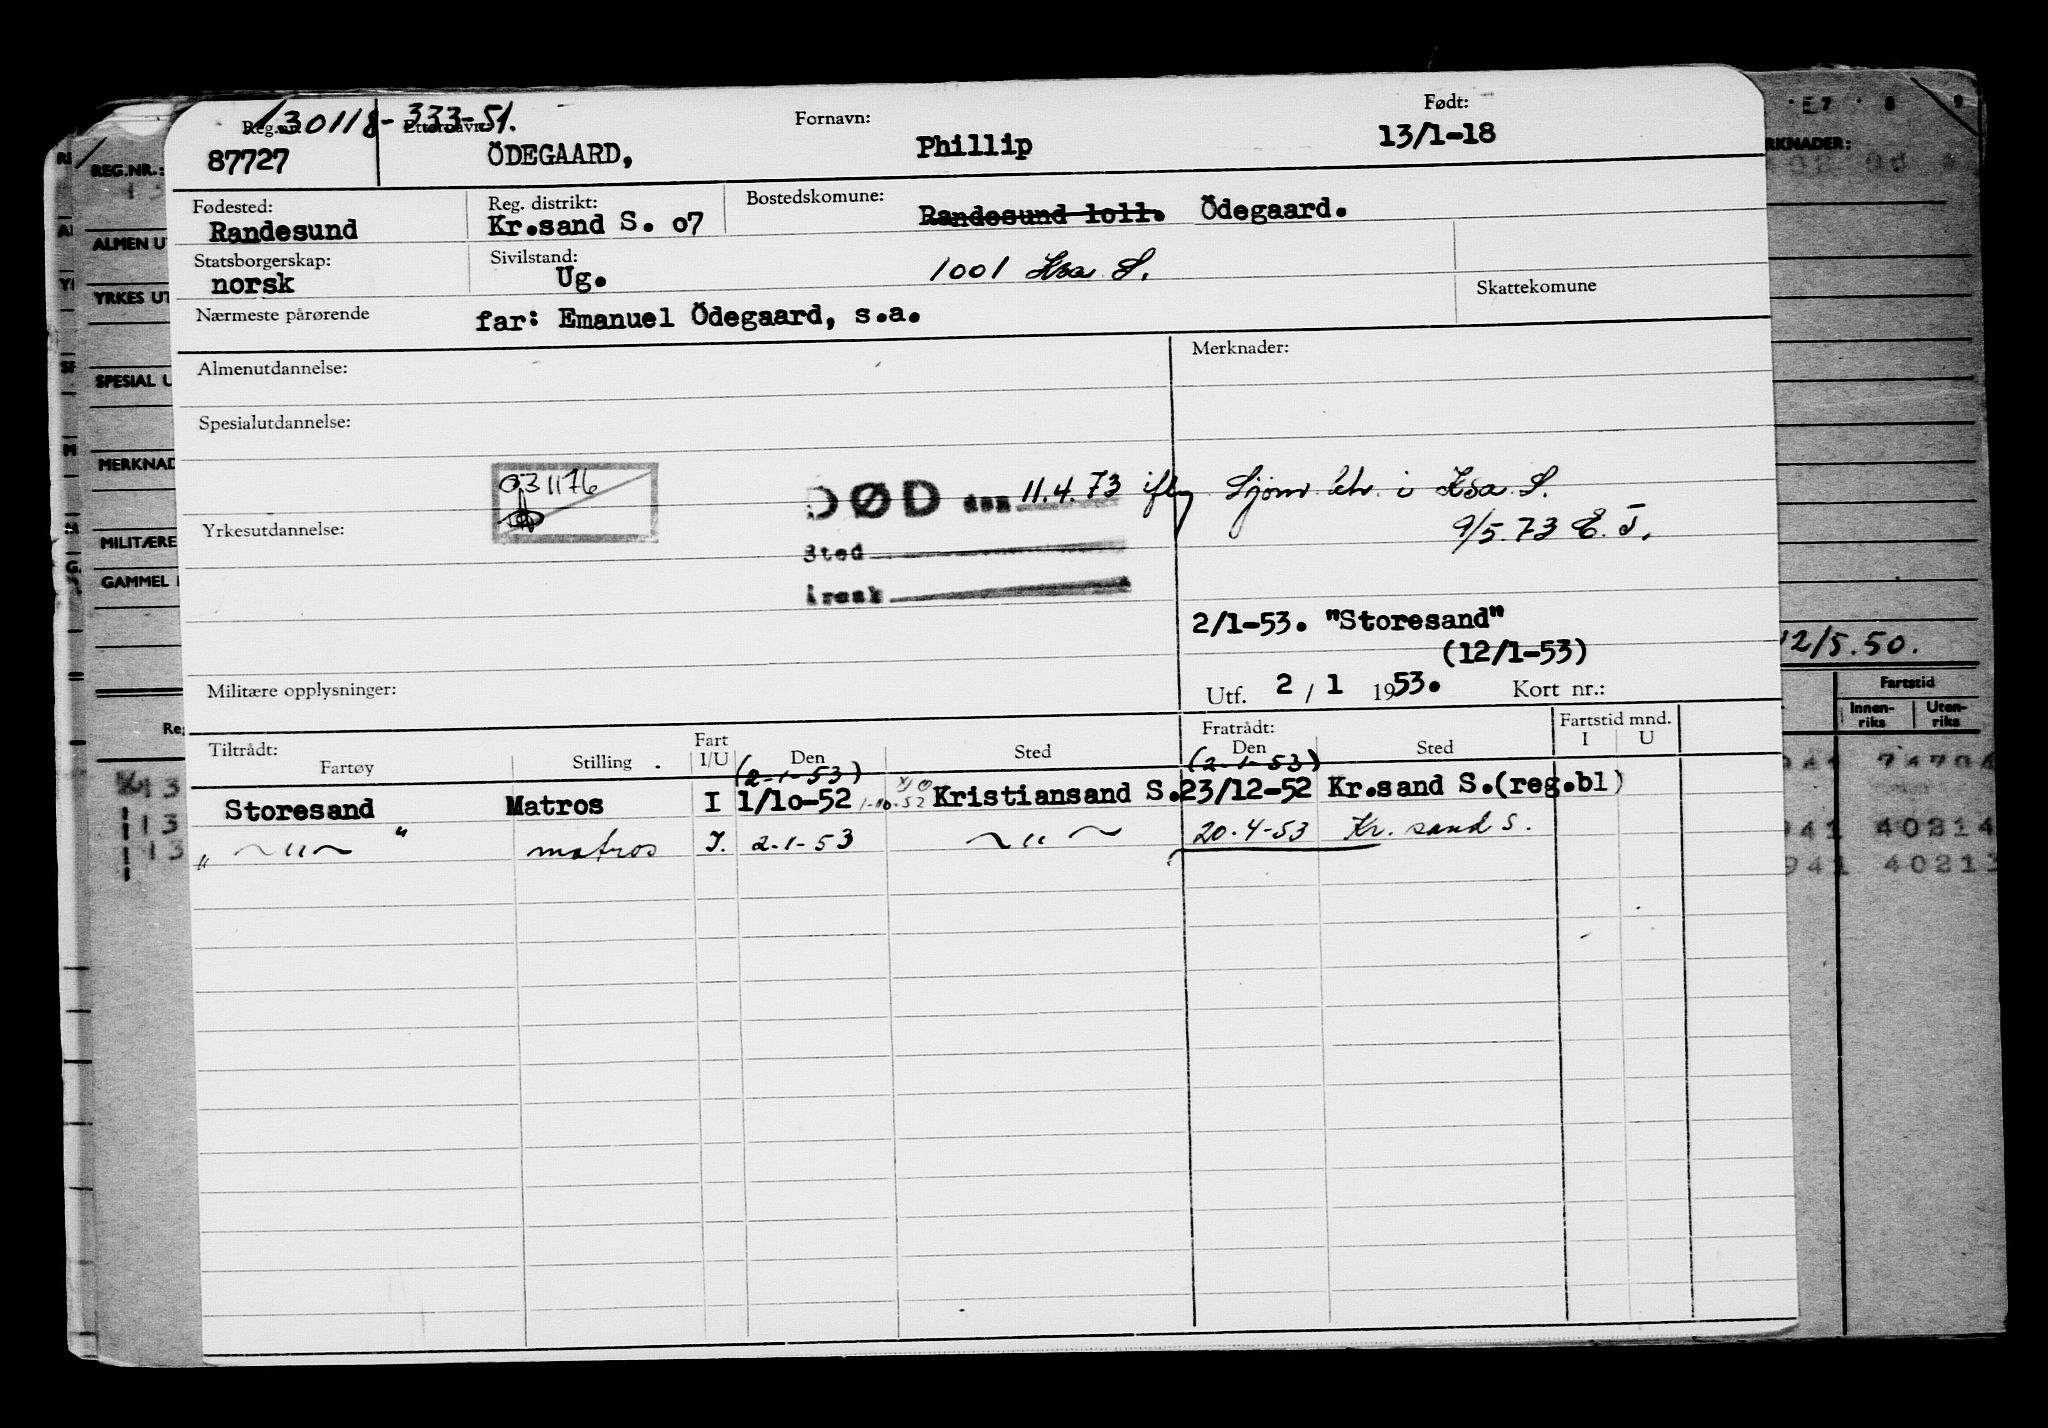 130118-333-51.
Reg.nr. Etternavn: Fornavn: Født:
87727 ÖDEGAARD, Phillip 13/1-18
Fødested: Reg. distrikt: Bostedskomune:
Randesund Kr.sand S. o7 Randesund loll. Ödegaard.
Statsborgerskap: Sivilstand:
norsk Ug. 1001 Krsa S.
Nærmeste pårørende far: Emanuel Ödegaard, s.a. Skattekomune
Almenutdannelse: Merknader:
Spesialutdannelse:
031176
DØD den 11.4.73 iflg Sjøm. ktr. i Krsa S.
Yrkesutdannelse: 9/5.73 E. T.
Sted
Årsak
2/1-53. "Storesand"
(12/1-53)
Militære opplysninger: Utf. 2 / 1 1953. Kort nr.:
Tiltrådt: Fratrådt: Fartstid mnd.
Fartøy Stilling Fart I/U Den Sted Den Sted I U
(2-1-53) (2-1-53)
Storesand Matros I 1/10-52 1-10-52 Kristiansand S. 23/12-52 Kr.sand S.(reg.bl)
" ~"~ " matros I. 2-1-53 ~"~ 20.4-53 Kr. sand S.
REG.NR.:
ALMEN UT
YRKES UT
SPESIAL U
MERKNAD
MILITÆRE
GAMMEL
Re
13
13
13
E7 8 9
RKNADER:
12/5.50.
Fartstid
Innen-riks Uten-riks
941 74706
941 40214
941 40213